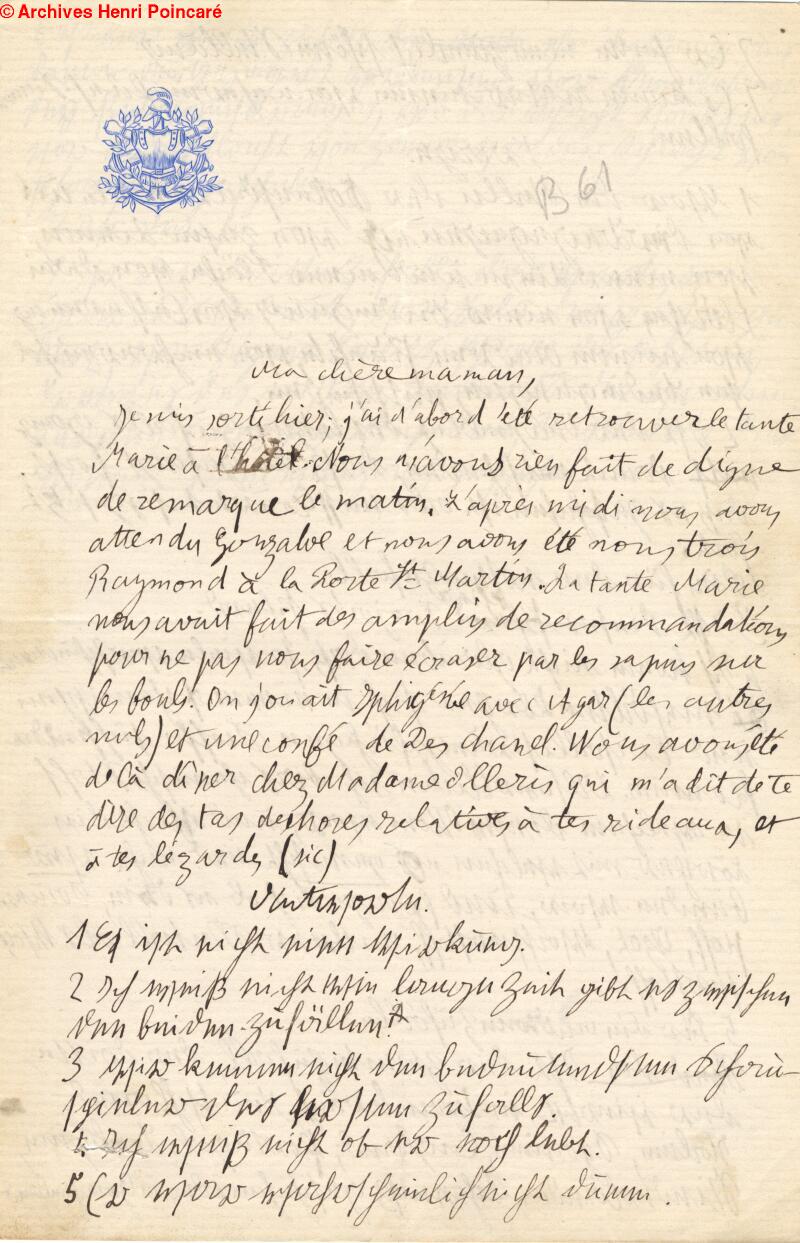 © Archives Henri Poincaré
B 61
Ma chère maman,
Je suis sorti hier; j'ai d'abord été retrouver le tante
Marie à l'hôtel. Nous n'avons rien fait de digne
de remarque le matin. L'après midi nous avons
attendu Gonzalve et nous avons été nous trois
Raymond à la Porte St Martin. La tante Marie
nous avait fait des amplis de recommandations
pour ne pas nous faire écraser par les sapins sur
les bouls. On jouait Iphigénie avec Agar (les autres
nuls) et une confé de Deschanel. Nous avons été
de là dîner chez Madame Olleris qui m'a dit de te
dire des tas de choses relatives à tes rideaux, et
à tes lézardes (sic)
Antworten.
1 Es ist nicht eine Wirkung.
2 Ich weiß nicht wie lange Zeit gibt es zwischen
den beiden Zufällen.
3 Wir kennen nicht den bedeutendsten Schau-
spieler des ersten Zufalls.
4 Ich weiß nicht ob er noch lebt.
5 Er war wahrscheinlich nicht dumm.